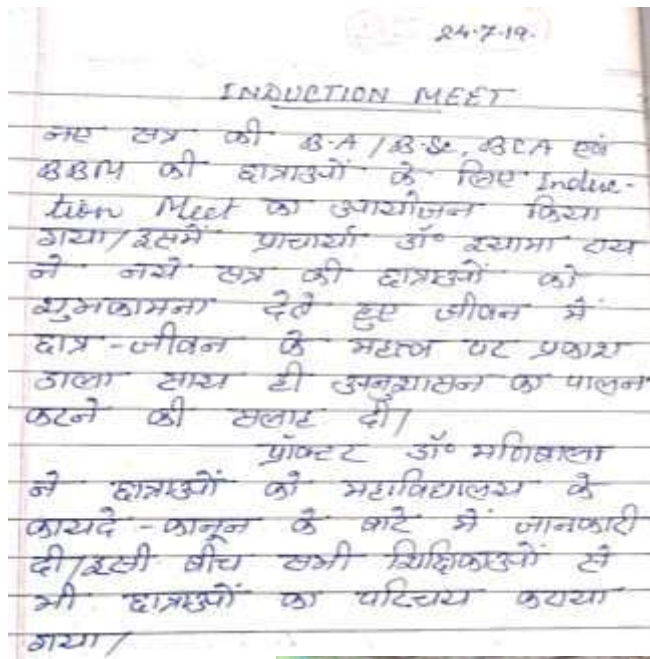 24.7.19.
INDUCTION MEET
नए सत्र की B.A/B.Sc, BCA एवं
BBM की छात्राओं के लिए Induc-
tion Meet का आयोजन किया
गया/इसमें प्राचार्या डॉ॰ श्यामा राय
ने नये सत्र की छात्राओं को
शुभकामना देते हुए जीवन में
छात्र-जीवन के महत्व पर प्रकाश
डाला साथ ही अनुशासन का पालन
करने की सलाह दी/
प्रॉक्टर डॉ॰ मणिबाला
ने छात्राओं को महाविद्यालय के
कायदे-कानून के बारे में जानकारी
दी/इसी बीच सभी शिक्षिकाओं से
भी छात्राओं का परिचय कराया
गया/